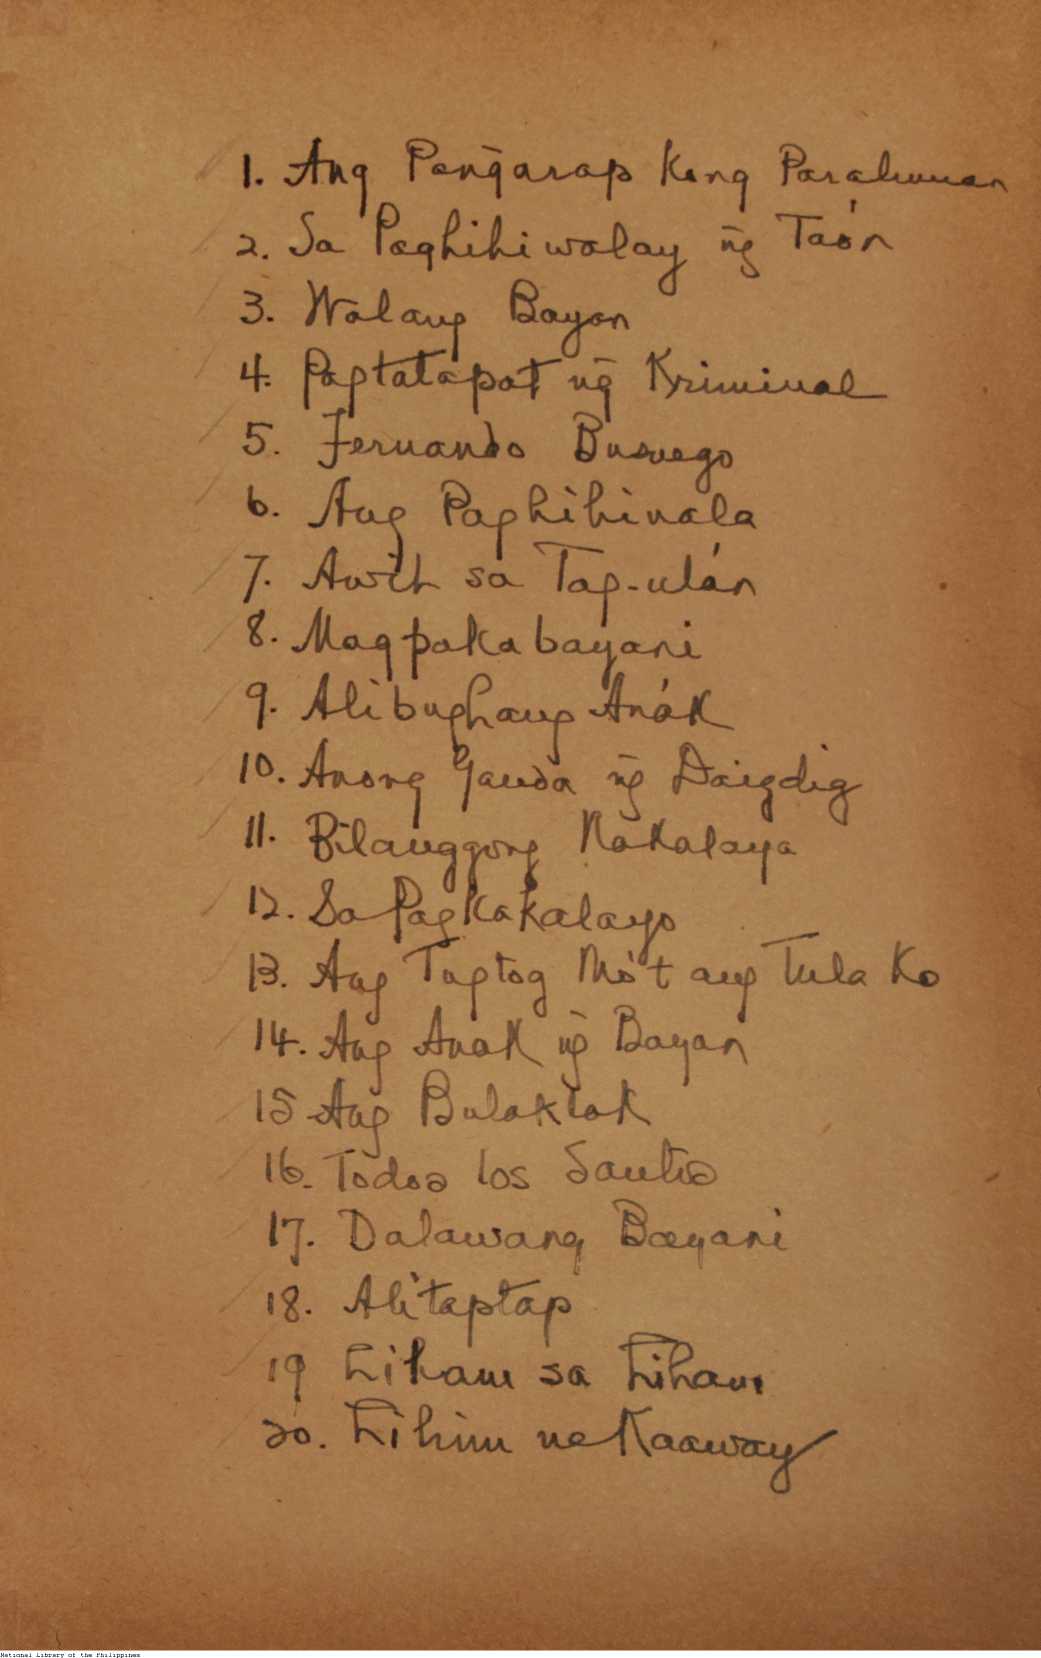 1. Ang Pangarap Kong Paraluman
2. Sa Paghihiwalay ng̃ Taón
3. Walang Bayan
4. Pagtatapat ng̃ Kriminal
5. Fernando Busuego
6. Ang Paghihinala
7. Awit sa Tag-ulán
8. Magpakabayani
9. Alibughang Anák
10. Anong Ganda ng̃ Daigdig
11. Bilanggong Nakalaya
12. Sa Pagkakalayo
13. Ang Tugtog Mo't ang Tula Ko
14. Ang Anak ng̃ Bayan
15 Ang Bulaklak
16. Todos los Santos
17. Dalawang Bayani
18. Alitaptap
19 Liham sa Liham
20. Lihim na Kaaway
National Library of the Philippines